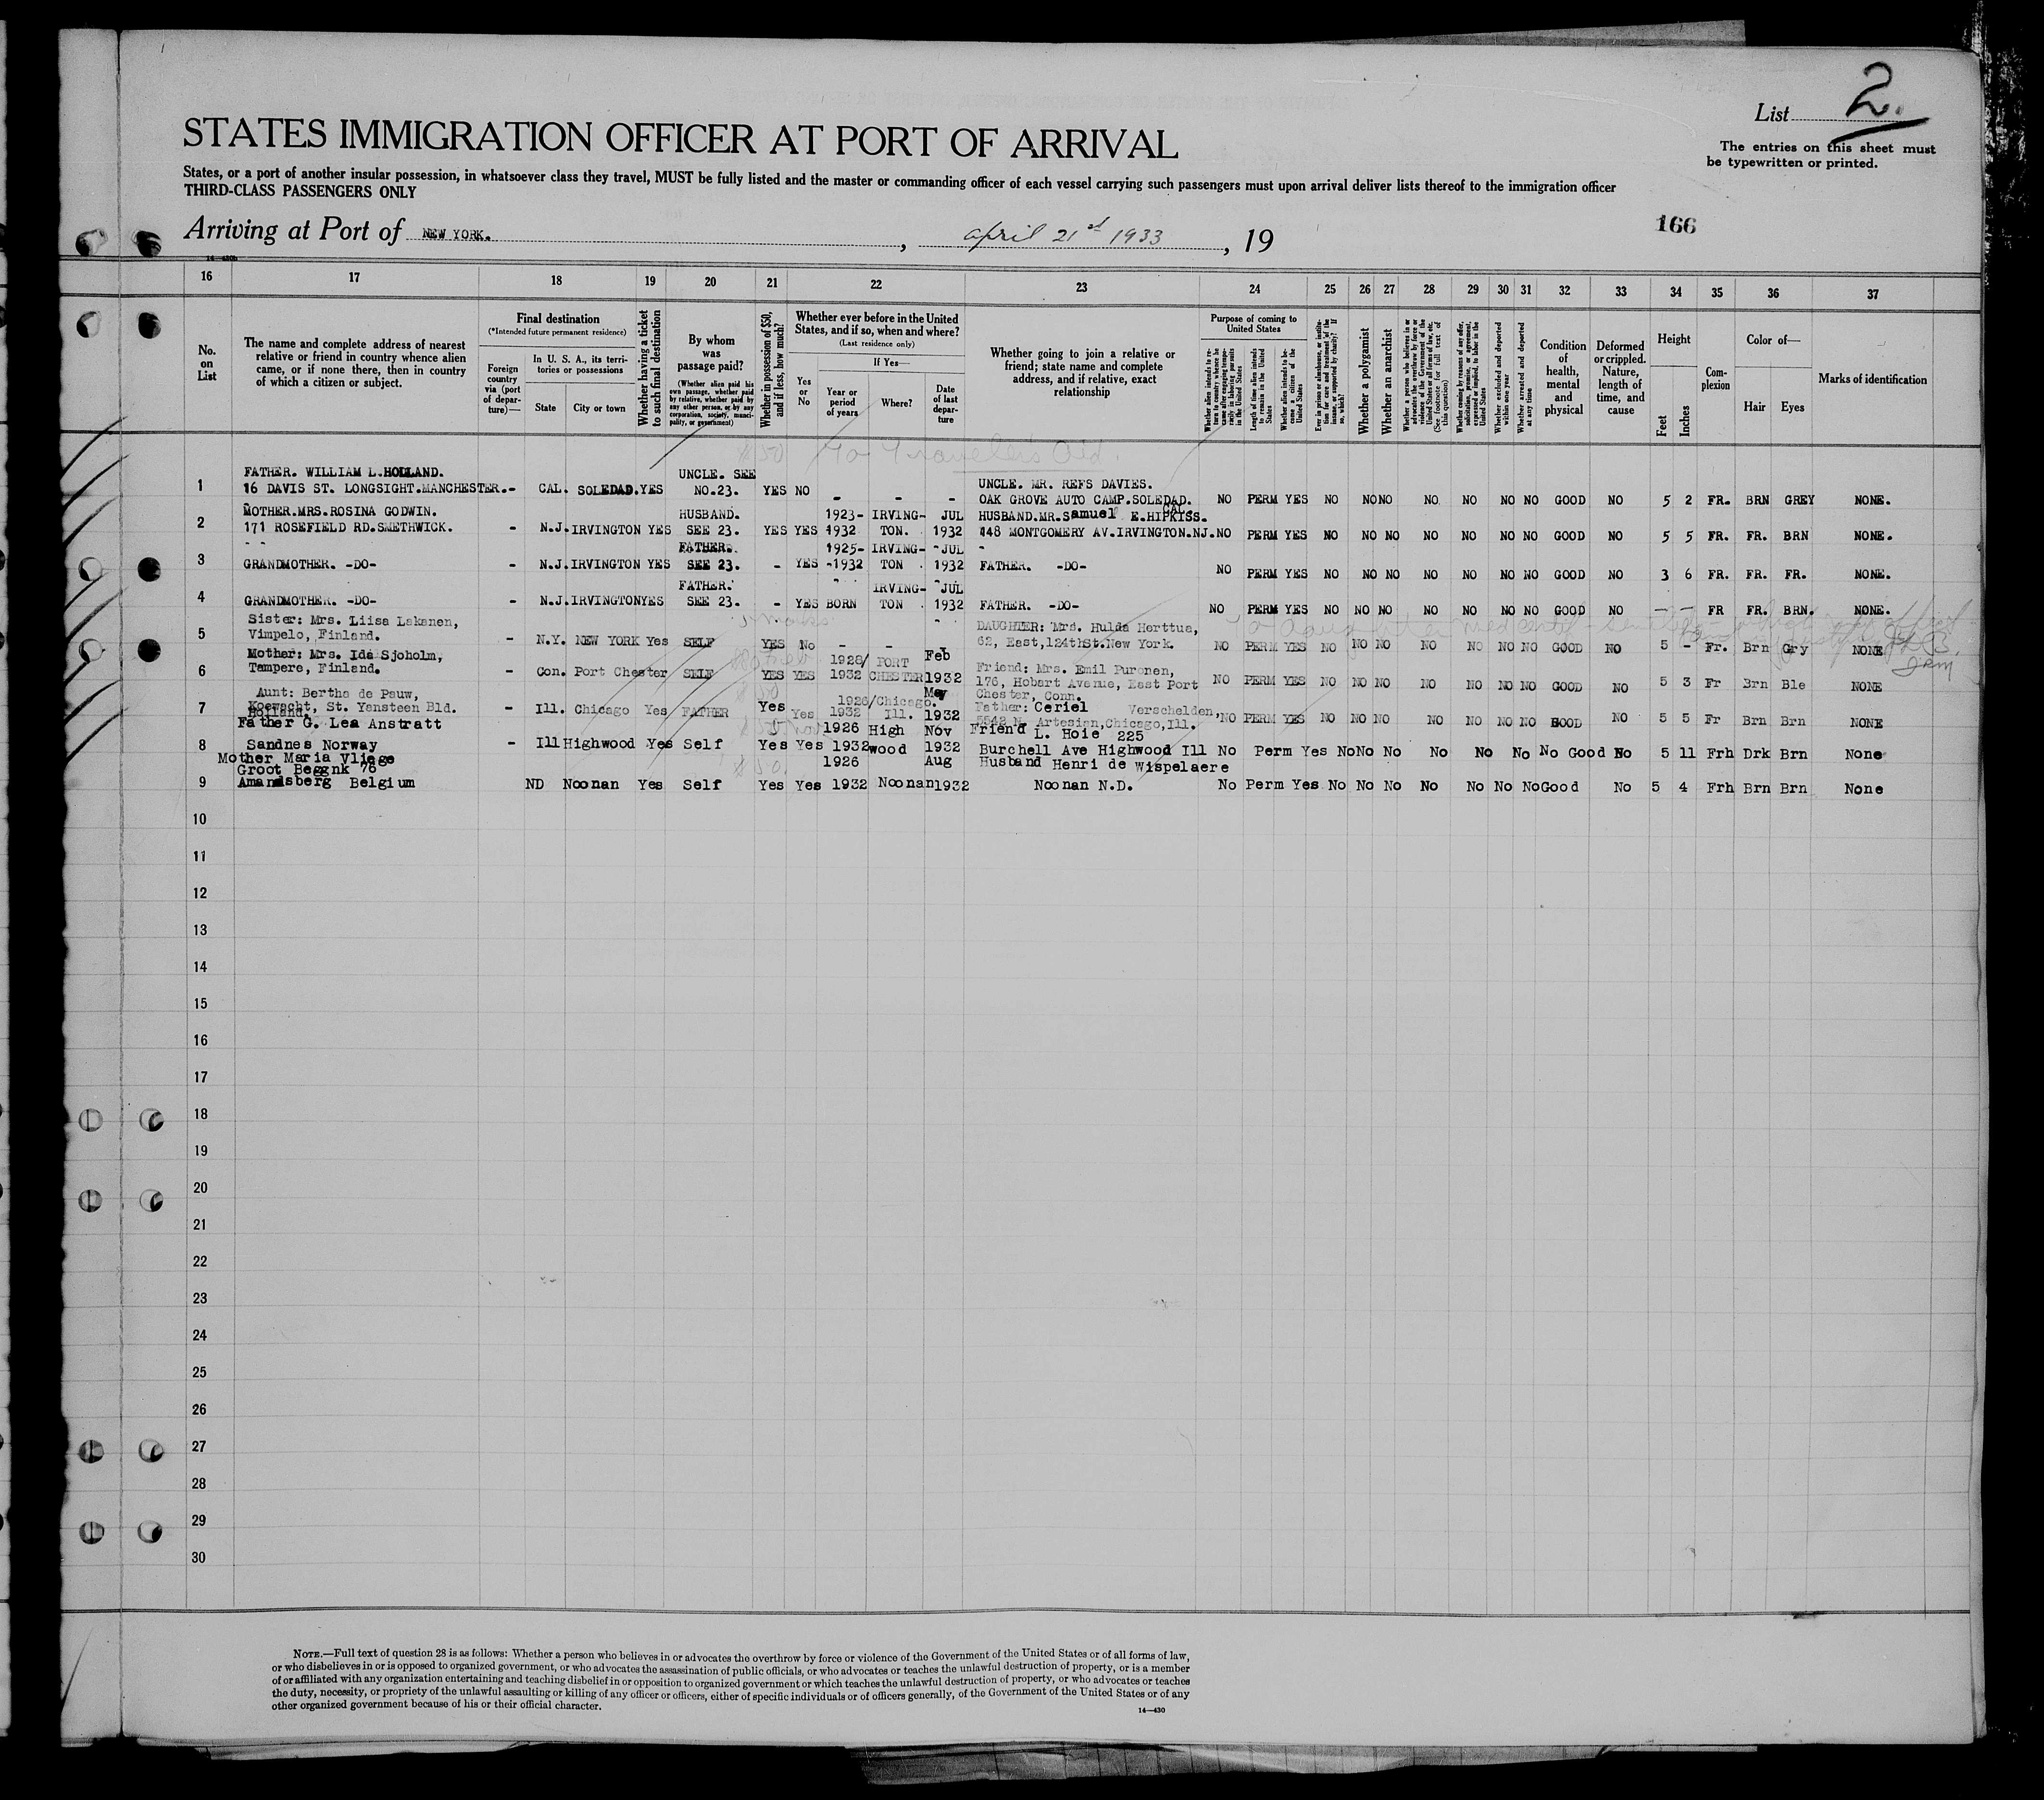 List 2.
The entries on this sheet must
be typewritten or printed.
STATES IMMIGRATION OFFICER AT PORT OF ARRIVAL
States, or a port of another insular possession, in whatsoever class they travel, MUST be fully listed and the master or commanding officer of each vessel carrying such passengers must upon arrival deliver lists thereof to the immigration officer
THIRD-CLASS PASSENGERS ONLY
166
Arriving at Port of NEW YORK. , April 21st 1933 , 19
16 17 18 19 20 21 22 23 24 25 26 27 28 29 30 31 32 33 34 35 36 37
No. on List
The name and complete address of nearest
relative or friend in country whence alien
came, or if none there, then in country
of which a citizen or subject.
Final destination
(*Intended future permanent residence)
Foreign country via (port of departure)—
In U. S. A., its territories or possessions
State
City or town
Whether having a ticket to such final destination
By whom was passage paid?
(Whether alien paid his own passage, whether paid by relative, whether paid by any other person, or by any corporation, society, municipality, or government)
Whether in possession of $50, and if less, how much?
Whether ever before in the United
States, and if so, when and where?
(Last residence only)
Yes or No
If Yes—
Year or period of years
Where?
Date of last departure
Whether going to join a relative or
friend; state name and complete
address, and if relative, exact
relationship
Purpose of coming to United States
Length of time alien intends to remain in the United States
Whether alien intends to become a citizen of the United States
Whether a polygamist
Whether an anarchist
Whether excluded and deported within one year
Whether arrested and deported at any time
Condition of health, mental and physical
Deformed or crippled. Nature, length of time, and cause
Height
Feet
Inches
Complexion
Color of—
Hair
Eyes
Marks of identification
$50 To Travelers Aid.
FATHER. WILLIAM L. HOLLAND. UNCLE. SEE UNCLE. MR. REFS DAVIES.
1 16 DAVIS ST. LONGSIGHT.MANCHESTER.- CAL. SOLEDAD. YES NO.23. YES NO - - - OAK GROVE AUTO CAMP.SOLEDAD. CAL. NO PERM YES NO NO NO NO NO NO NO GOOD NO 5 2 FR. BRN GREY NONE.
MOTHER.MRS.ROSINA GODWIN. HUSBAND. 1923- IRVING- JUL HUSBAND.MR.Samuel E.HIPKISS.
2 171 ROSEFIELD RD.SMETHWICK. - N.J. IRVINGTON YES SEE 23. YES YES 1932 TON. 1932 148 MONTGOMERY AV.IRVINGTON.NJ. NO PERM YES NO NO NO NO NO NO NO GOOD NO 5 5 FR. FR. BRN NONE.
FATHER. 1925- IRVING- JUL
3 GRANDMOTHER. -DO- - N.J. IRVINGTON YES SEE 23. - YES -1932 TON . 1932 FATHER. -DO- NO PERM YES NO NO NO NO NO NO NO GOOD NO 3 6 FR. FR. FR. NONE.
FATHER. IRVING- JUL
4 GRANDMOTHER. -DO- - N.J. IRVINGTON YES SEE 23. - YES BORN TON . 1932 FATHER. -DO- NO PERM YES NO NO NO NO NO NO NO GOOD NO - - FR FR. BRN. NONE.
Sister: Mrs. Liisa Lakanen, DAUGHTER: Mrs. Hulda Herttua,
5 Vimpelo, Finland. - N.Y. NEW YORK Yes SELF YES No - - - 62, East,124thSt.New York. NO PERM YES NO NO NO NO NO NO NO GOOD NO 5 - Fr. Brn Gry NONE
Mother: Mrs. Ida Sjoholm, 1928/ PORT Feb Friend: Mrs. Emil Puronen,
6 Tampere, Finland. - Con. Port Chester SELF YES YES 1932 CHESTER 1932 176, Hobart Avenue, East Port Chester, Conn. NO PERM YES NO NO NO NO NO NO NO GOOD NO 5 3 Fr Brn Ble NONE
Aunt: Bertha de Pauw, 1926/Chicago. May Father: Ceriel Verschelden,
7 Koewacht, St. Yansteen Bld. Holland. - Ill. Chicago Yes FATHER Yes Yes 1932 Ill. 1932 5542 N. Artesian,Chicago,Ill. NO PERM YES NO NO NO NO NO NO NO GOOD NO 5 5 Fr Brn Brn NONE
Father G. Lea Anstratt 1926 High Nov Friend L. Hoie 225
8 Sandnes Norway - Ill Highwood Yes Self Yes Yes 1932 wood 1932 Burchell Ave Highwood Ill No Perm Yes No No No No No No No Good No 5 11 Frh Drk Brn None
Mother Maria Vliege 1926 Aug Husband Henri de Wispelaere
Groot Beggnk 76
9 Amandsberg Belgium ND Noonan Yes Self Yes Yes 1932 Noonan 1932 Noonan N.D. No Perm Yes No No No No No No No Good No 5 4 Frh Brn Brn None
10
11
12
13
14
15
16
17
18
19
20
21
22
23
24
25
26
27
28
29
30
NOTE.—Full text of question 28 is as follows: Whether a person who believes in or advocates the overthrow by force or violence of the Government of the United States or of all forms of law,
or who disbelieves in or is opposed to organized government, or who advocates the assassination of public officials, or who advocates or teaches the unlawful destruction of property, or is a member
of or affiliated with any organization entertaining and teaching disbelief in or opposition to organized government or which teaches the unlawful destruction of property, or who advocates or teaches
the duty, necessity, or propriety of the unlawful assaulting or killing of any officer or officers, either of specific individuals or of officers generally, of the Government of the United States or of any
other organized government because of his or their official character.
14—430